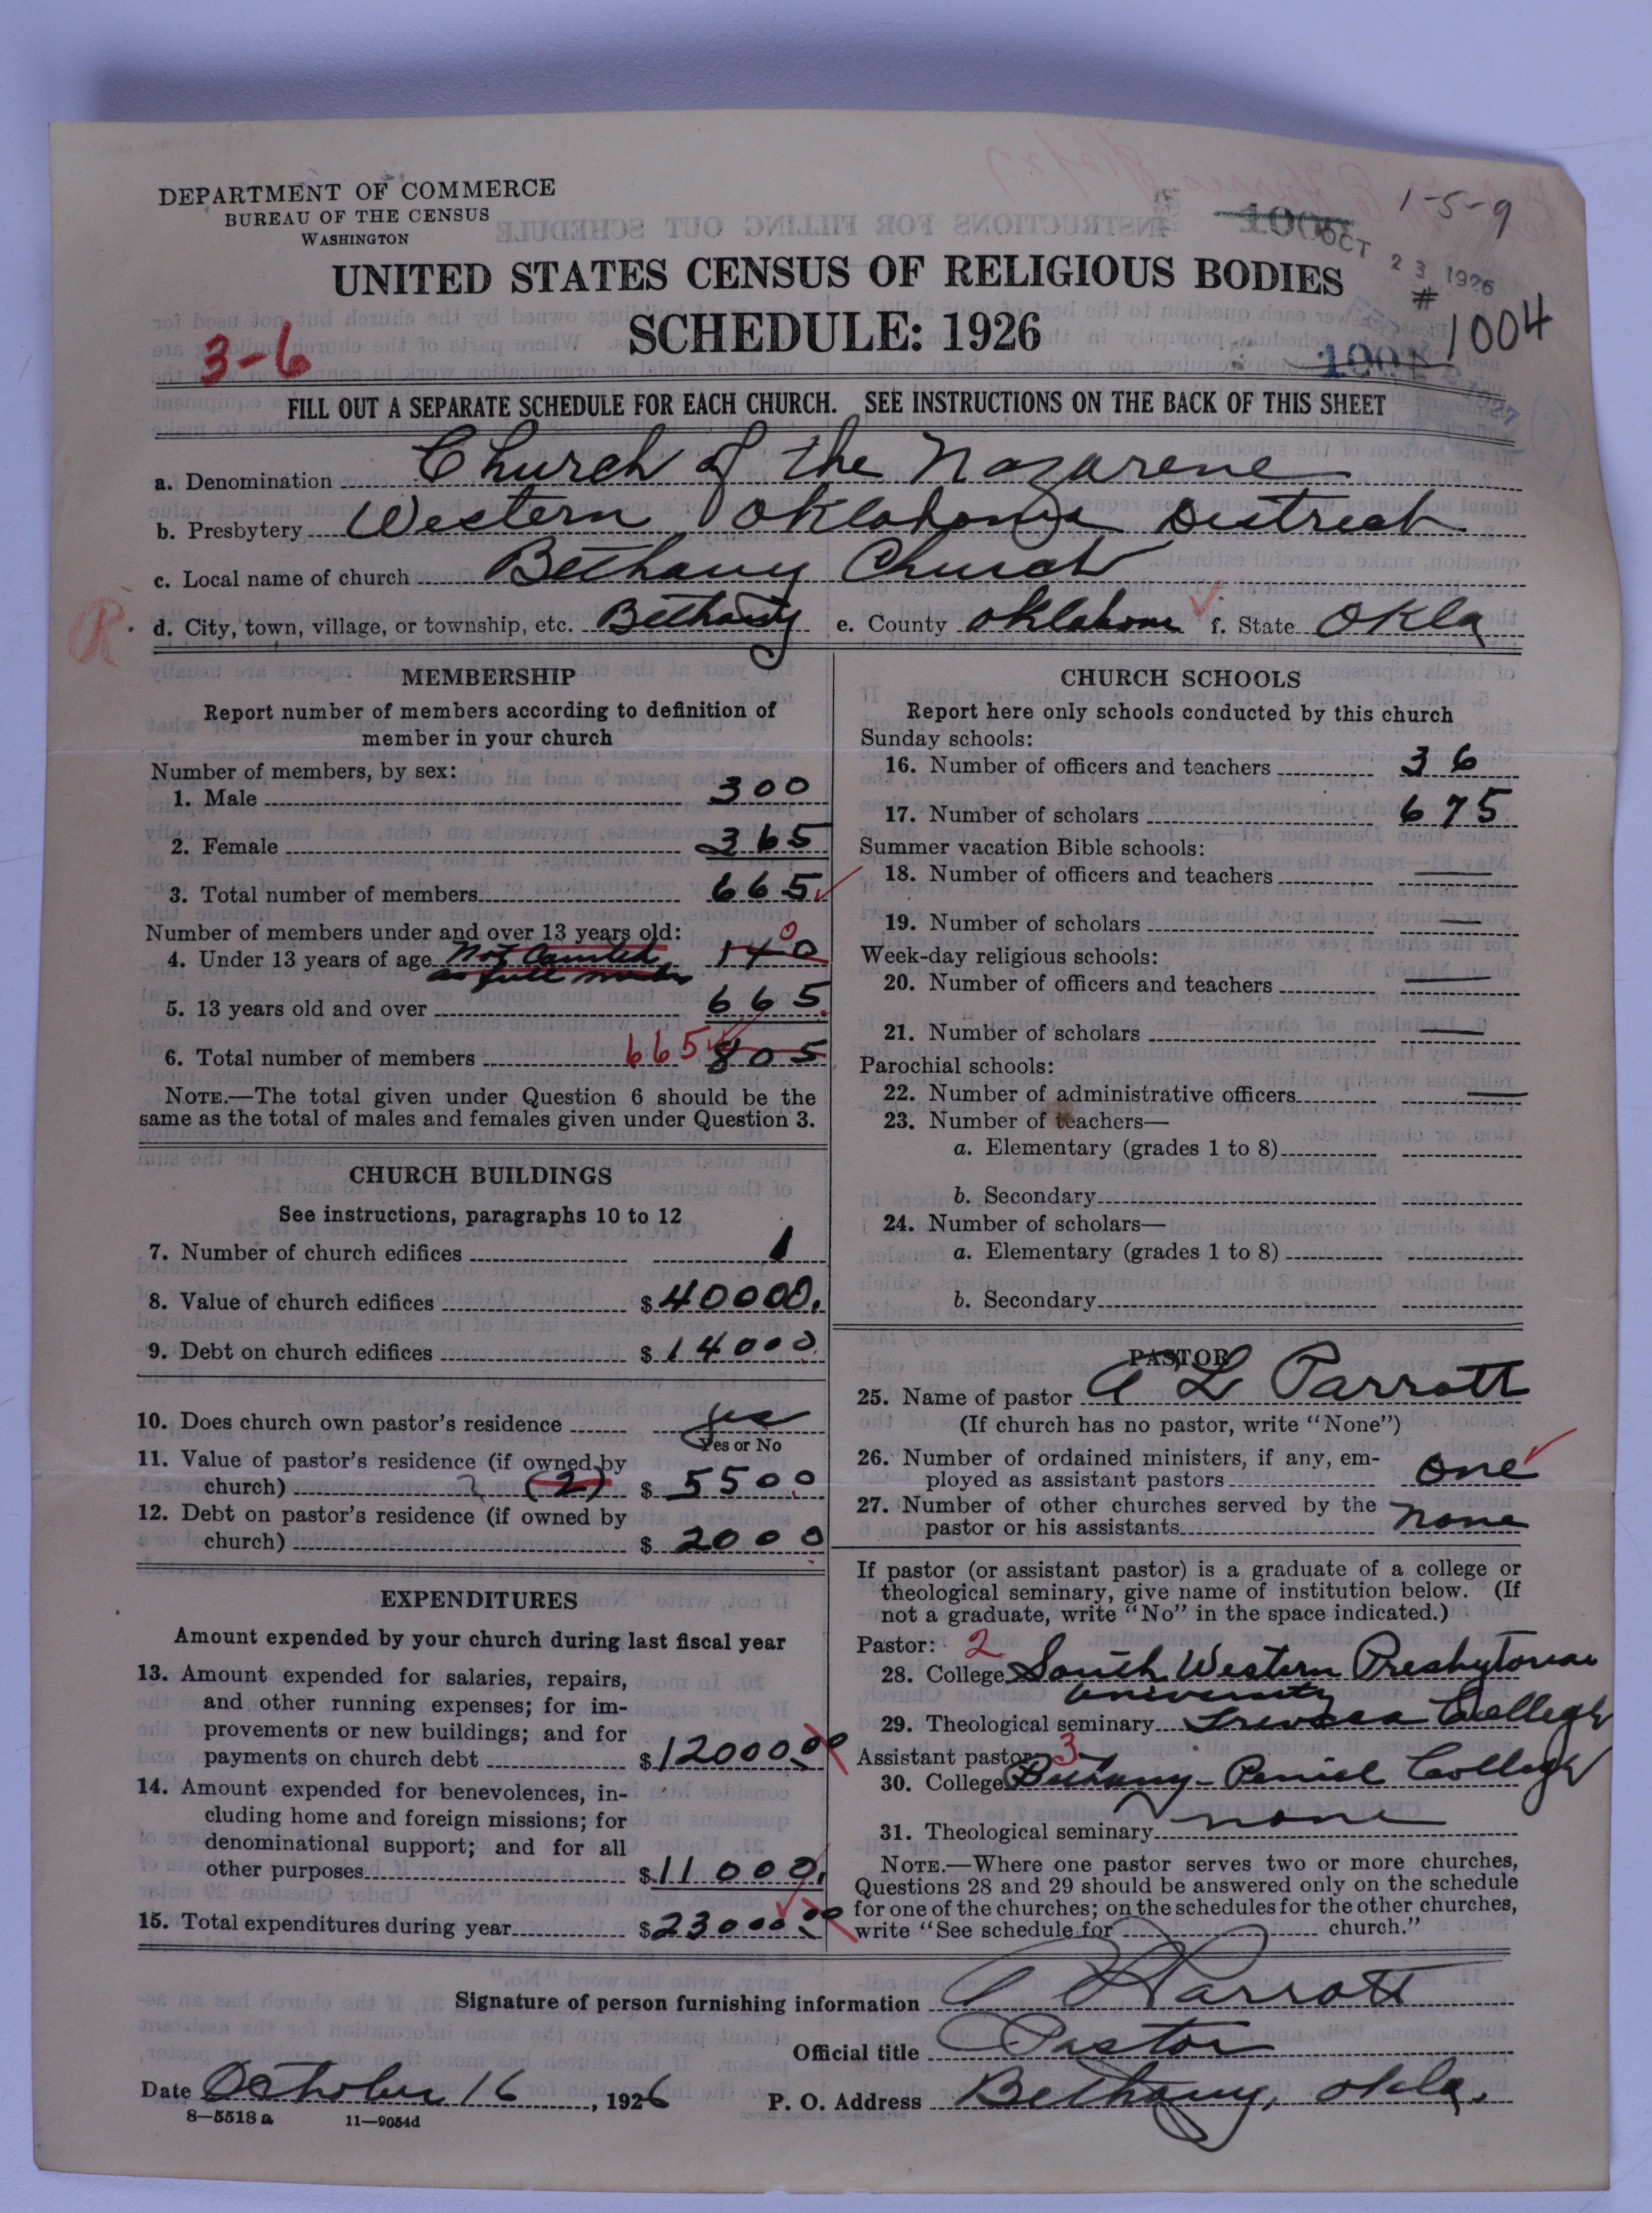 DEPARTMENT OF COMMERCE
BUREAU OF THE CENSUS
WASHINGTON
1-5-9
OCT 23 1926
UNITED STATES CENSUS OF RELIGIOUS BODIES
SCHEDULE: 1926
# 1004
3-6
1001
FILL OUT A SEPARATE SCHEDULE FOR EACH CHURCH. SEE INSTRUCTIONS ON THE BACK OF THIS SHEET
a. Denomination Church of the Nazarene
b. Presbytery Western Oklahoma District
c. Local name of church Bethany Church
R. d. City, town, village, or township, etc. Bethany e. County Oklahoma f. State Okla
MEMBERSHIP
Report number of members according to definition of
member in your church
Number of members, by sex:
1. Male 300
2. Female 365
3. Total number of members 665
Number of members under and over 13 years old:
4. Under 13 years of age Not Counted 140 0
as full member
5. 13 years old and over 665
6. Total number of members 665 805
NOTE.—The total given under Question 6 should be the
same as the total of males and females given under Question 3.
CHURCH BUILDINGS
See instructions, paragraphs 10 to 12
7. Number of church edifices 1
8. Value of church edifices $40000.
9. Debt on church edifices $14000
10. Does church own pastor's residence yes
Yes or No
11. Value of pastor's residence (if owned by
church) 2 (2) $5500
12. Debt on pastor's residence (if owned by
church) $2000
EXPENDITURES
Amount expended by your church during last fiscal year
13. Amount expended for salaries, repairs,
and other running expenses; for im-
provements or new buildings; and for
payments on church debt $12000.00
14. Amount expended for benevolences, in-
cluding home and foreign missions; for
denominational support; and for all
other purposes $11000.
15. Total expenditures during year $23000.00
CHURCH SCHOOLS
Report here only schools conducted by this church
Sunday schools:
16. Number of officers and teachers 36
17. Number of scholars 675
Summer vacation Bible schools:
18. Number of officers and teachers —
19. Number of scholars —
Week-day religious schools:
20. Number of officers and teachers —
21. Number of scholars —
Parochial schools:
22. Number of administrative officers —
23. Number of teachers—
a. Elementary (grades 1 to 8)
b. Secondary
24. Number of scholars—
a. Elementary (grades 1 to 8)
b. Secondary
PASTOR
25. Name of pastor A L Parrott
(If church has no pastor, write "None")
26. Number of ordained ministers, if any, em-
ployed as assistant pastors one
27. Number of other churches served by the
pastor or his assistants none
If pastor (or assistant pastor) is a graduate of a college or
theological seminary, give name of institution below. (If
not a graduate, write "No" in the space indicated.)
Pastor: 2
28. College South Western Presbyterian
University
29. Theological seminary Trevecca College
Assistant pastor: 3
30. College Bethany-Peniel College
31. Theological seminary none
NOTE.—Where one pastor serves two or more churches,
Questions 28 and 29 should be answered only on the schedule
for one of the churches; on the schedules for the other churches,
write "See schedule for church."
Signature of person furnishing information A L Parrott
Official title Pastor
Date October 16, 1926 P. O. Address Bethany, Okla.
8—5518 a 11—9054d